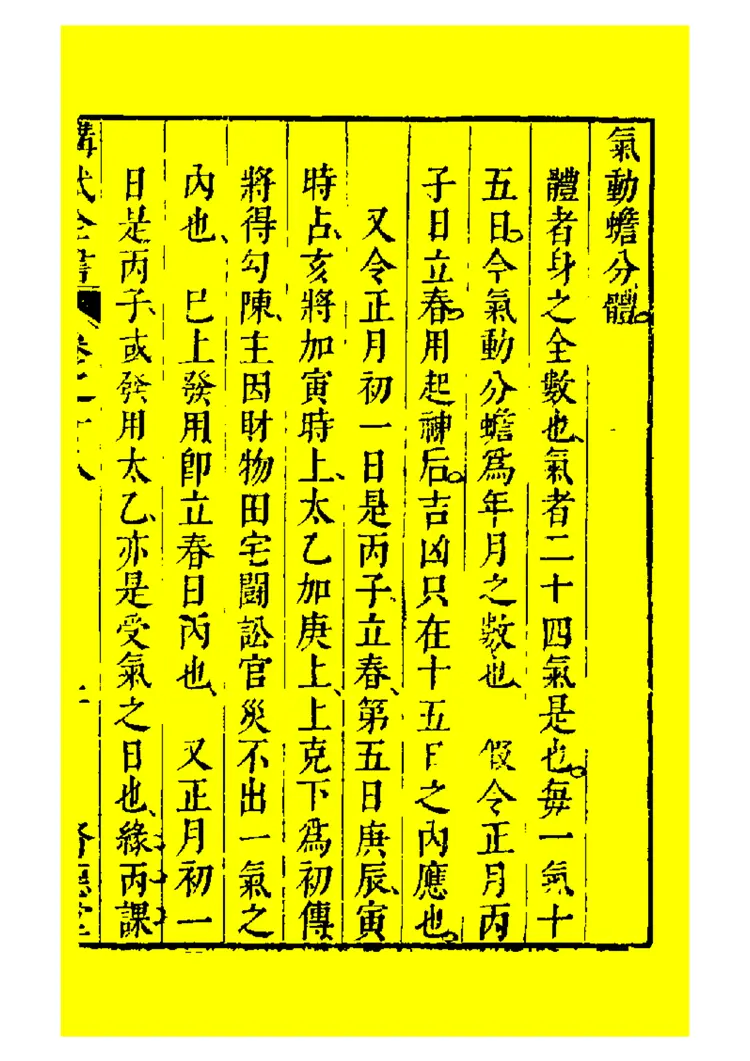 氣動蟾分體。
體者身之全數也、氣者二十四氣是也。每一氣十
五日。今氣動分蟾爲年月之數也 假令正月丙
子日立春。用起神后。吉凶只在十五日之內應也。
又令正月初一日是丙子、立春、第五日庚辰、寅
時占、亥將加寅時上、太乙加庚上、上克下爲初傳
將得勾陳、主因財物田宅鬭訟官災不出一氣之
內也、 巳上發用卽立春日丙也、 又正月初一
日是丙子、或發用太乙、亦是受氣之日也、緣丙課